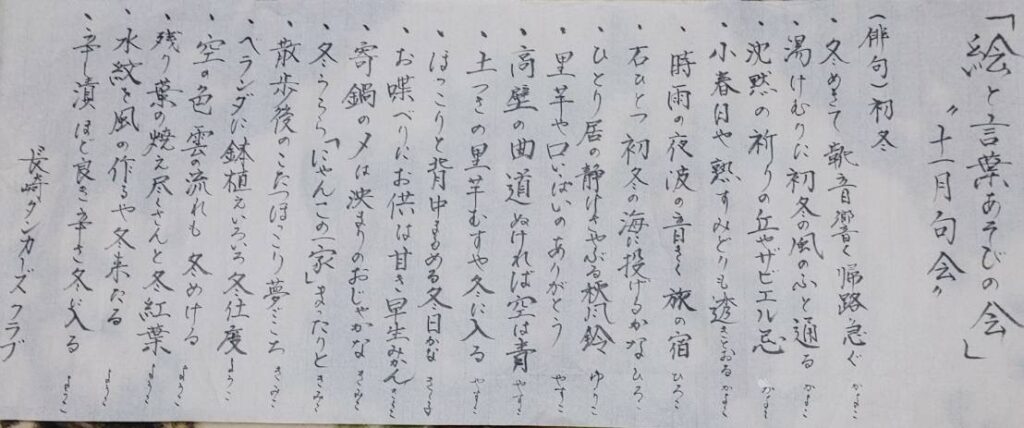 「絵と言葉あそびの会」
〝十一月句会〟
(俳句)初冬
・冬めきて靴音響く帰路急ぐ
・湯けむりに初冬の風のふと通る
・沈黙の祈りの丘やザビエル忌
・小春日や熱すみどりも透きとおる
・時雨の夜波の音きく旅の宿 ひろこ
・石ひとつ初冬の海に投げるかな ひろこ
・ひとり居の静けさやぶる秋風鈴 ゆりこ
・里芋や口いっぱいのありがとう やすこ
・高壁の曲道ぬければ空は青 やすこ
・土つきの里芋むすや冬に入る やすこ
・ほっこりと背中まるめる冬日かな
・お喋べりにお供は甘き早生みかん
・寄鍋の〆は決まりのおじやかな
・冬うらら「にゃんこの一家」まったりと
・散歩後のこたつほっこり夢ごこち
・ベランダに鉢植えいろいろ冬仕度 ようこ
・空の色雲の流れも冬めける ようこ
・残り葉の燃え尽くさんと冬紅葉 ようこ
・水紋を風の作るや冬来たる ようこ
・辛漬ほど良き辛さ冬に入る ようこ
長崎ダンカーズクラブ